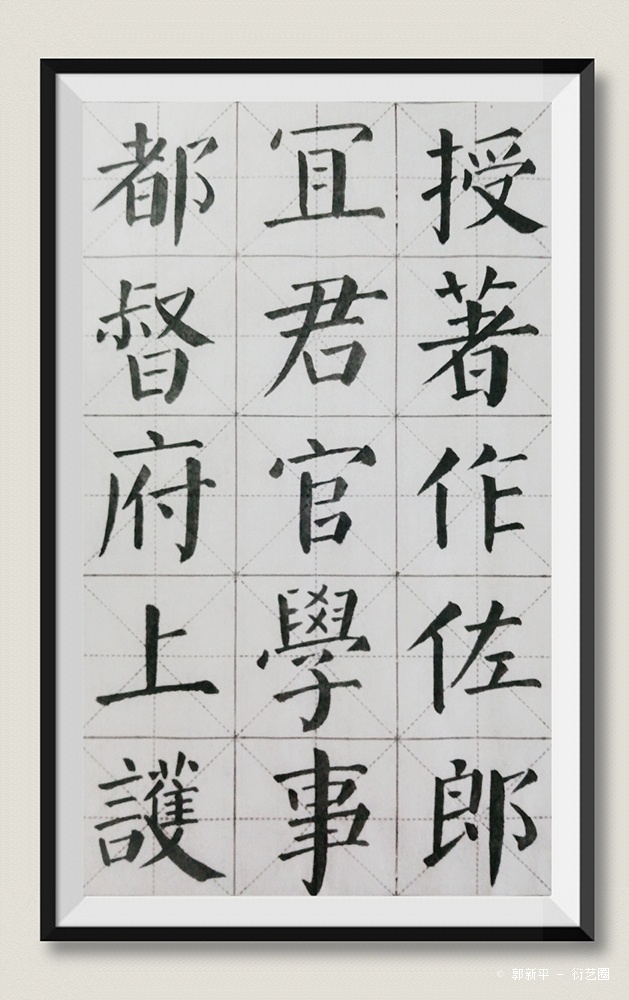 授著作佐郎
冝君官學事
都督府上護
© 郭新平 – 衍艺圈